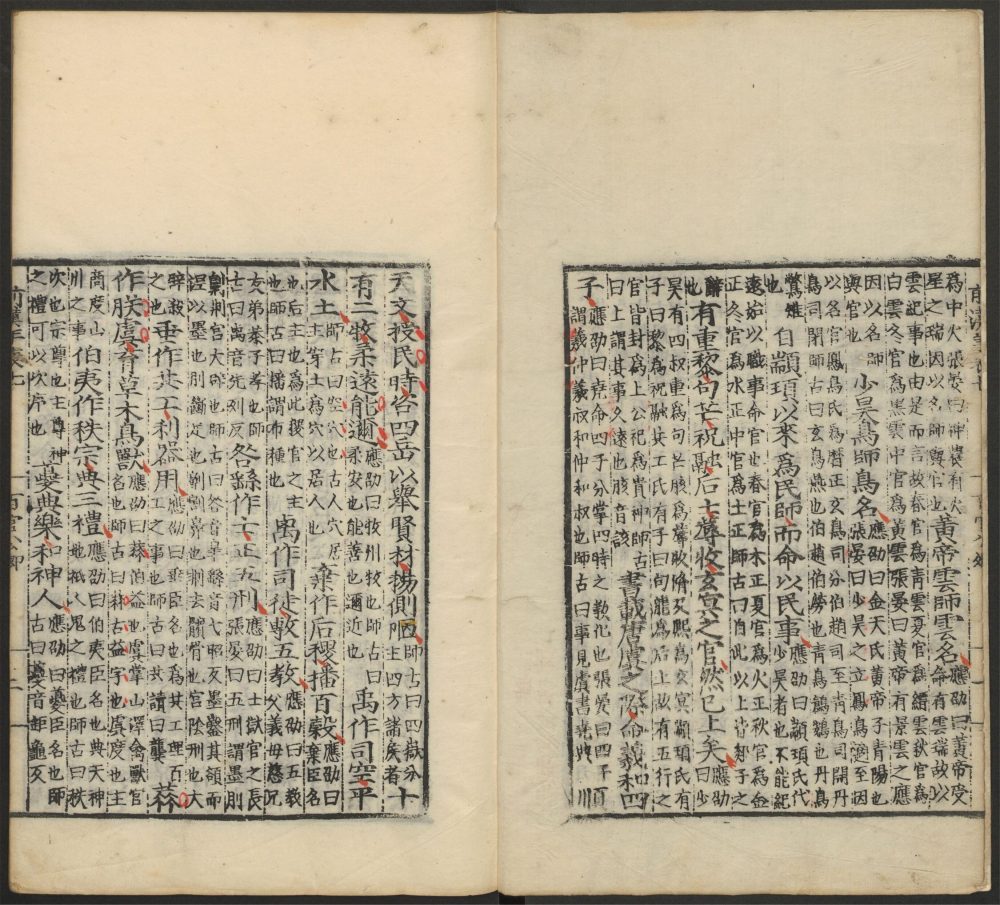 爲中火張晏曰神農有火
星之瑞因以名師與官也
黃帝雲師雲名
應劭曰黃帝受
命有雲瑞故以
雲紀事也由是而言故春官爲靑雲夏官爲縉雲秋官爲
白雲冬官爲黑雲中官爲黃雲張晏曰黃帝有景雲之應
因以名師
與官也
少昊鳥師鳥名
應劭曰金天氏黃帝子靑陽也
張晏曰少昊之立鳳鳥適至因
以名官鳳鳥氏爲曆正玄鳥司分伯趙司至靑鳥司開丹
鳥司閉師古曰玄鳥燕也伯趙伯勞也靑鳥鶬鶊也丹鳥
鷩雉
也
自顓頊以來爲民師而命以民事
應劭曰顓頊氏代
少昊者也不能紀
遠始以職事命官也春官爲木正夏官爲火正秋官爲金
正冬官爲水正中官爲土正師古曰自此以上皆郯子之
辭
也
有重黎句芒祝融后土蓐收玄冥之官然已上矣
應劭
曰少
昊有四叔重爲句芒胲爲蓐收脩及熙爲玄冥顓頊氏有
子曰黎爲祝融共工氏有子曰句龍爲后土故有五行之
官皆封爲上公祀爲貴神師古
曰上謂其事久遠也胲音該
書載唐虞之際命羲和四
子
應劭曰堯命四子分掌四時之敎化也張晏曰四子
謂羲仲羲叔和仲和叔也師古曰事見虞書堯典
天文授民時咨四岳以舉賢材揚側陋
師古曰四嶽分
主四方諸侯者
十
有二牧柔遠能邇
應劭曰牧州牧也師古曰
柔安也能善也邇近也
禹作司空平
水土
師古曰空穴也古人穴居
主穿土爲穴以居人也
棄作后稷播百穀
應劭曰
棄臣名
也后主也爲此稷官之主
也師古曰播謂布種也
禹作司徒敷五敎
應劭曰五敎
父義母慈兄
友弟恭子孝也師
古曰禼音先列反
咎繇作士正五刑
應劭曰士獄官之長
張晏曰五刑謂墨劓
剕宮大辟也師古曰咎音皋繇音弋昭反墨鑿其額而
涅以墨也刖斷足也劓割鼻也臏去髕骨也宮陰刑也大
辟殺
之也
垂作共工利器用
應劭曰垂臣名也爲共工理百
工之事也師古曰共讀曰龔
𦳝
作朕虞育草木鳥獸
應劭曰𦳝伯益也虞掌山澤禽獸官
名也師古曰𦳝古益字也虞度也主
商度山
川之事
伯夷作秩宗典三禮
應劭曰伯夷臣名也典天神
地祇人鬼之禮也師古曰秩
次也宗尊也主尊神
之禮可以次序也
夔典樂和神人
應劭曰夔臣名也師
古曰夔音鉅龜反